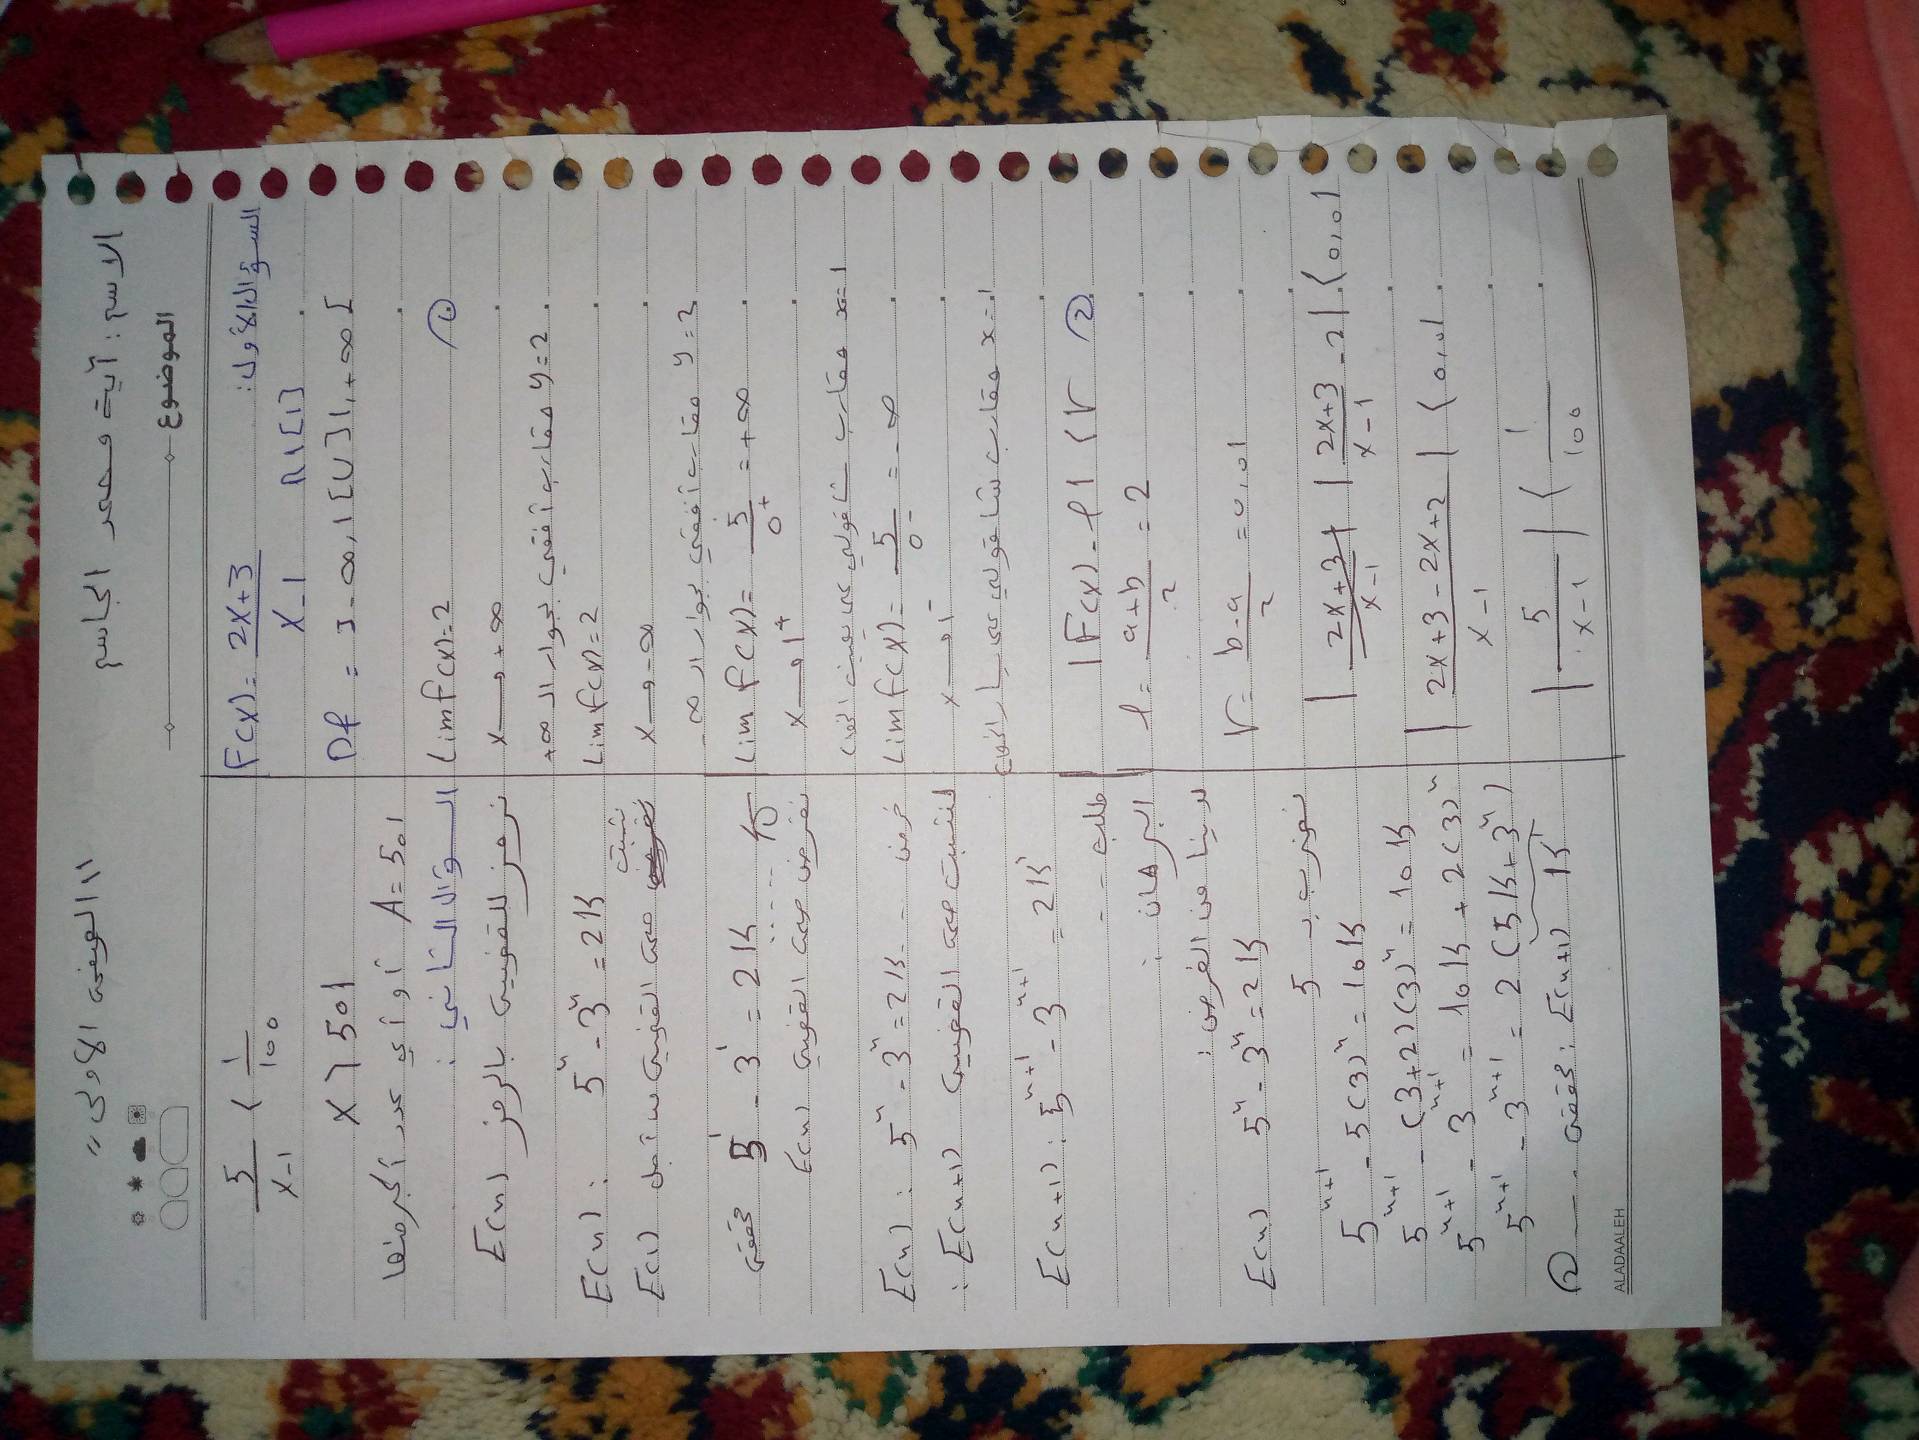 الاسم: آية محمد الجاسم
"الوظيفة الأولى"
الموضوع
السؤال الأول:
F(x) = 2x+3 / x-1 R\{1}
Df = ]-∞, 1[ U ]1, +∞[
①
Lim f(x) = 2
x → +∞
y = 2 مقارب أفقي بجوار الـ +∞
Lim f(x) = 2
x → -∞
y = 2 مقارب أفقي بجوار الـ -∞
Lim f(x) = 5 / 0+ = +∞
x → 1+
x = 1 مقارب شاقولي
Lim f(x) = 5 / 0- = -∞
x → 1-
x = 1 مقارب شاقولي
② |F(x) - l| < r
l = a+b / 2 = 2
r = b-a / 2 = 0,01
| 2x+3 / x-1 | 2x+3 / x-1 - 2 | < 0,01
| 2x+3 - 2x+2 / x-1 | < 0,01
| 5 / x-1 | < 1 / 100
5 / x-1 < 1 / 100
x > 501
A = 501 أو أي عدد أكبر منها
السؤال الثاني:
نرمز للقضية بالرمز E(n)
E(n): 5^n - 3^n = 2K
نثبت صحة القضية من أجل E(1)
5^1 - 3^1 = 2K محققة
نفرض صحة القضية E(n)
E(n): 5^n - 3^n = 2K - فرض
لنثبت صحة القضية E(n+1):
E(n+1): 5^n+1 - 3^n+1 = 2K'
طلب
البرهان:
لدينا من الفرض:
E(n) 5^n - 3^n = 2K
نضرب بـ 5
5^n+1 - 5(3)^n = 10K
5^n+1 - (3+2)(3)^n = 10K
5^n+1 - 3^n+1 = 10K + 2(3)^n
5^n+1 - 3^n+1 = 2(5K+3^n)
K'
E(n+1) محققة.
ALADAALEH